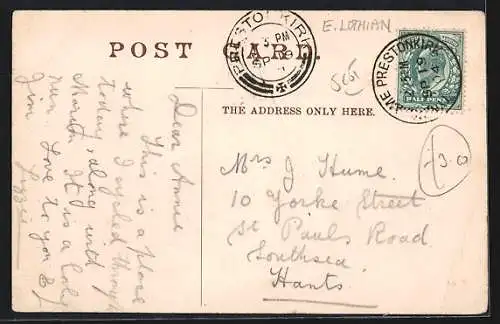 E. LOTHIAN
POST CARD.
PRESTONKIRK
PM
SP
PRESTONKIRK
HALFPENNY
THE ADDRESS ONLY HERE.
Dear Annie
This is a place
where I cycled through
today, along with
Marion. It is a lovely
run. Love to you &
Jim
Lizzie
Mrs J Hume.
10 Yorke Street
St Pauls Road
Southsea
Hants.